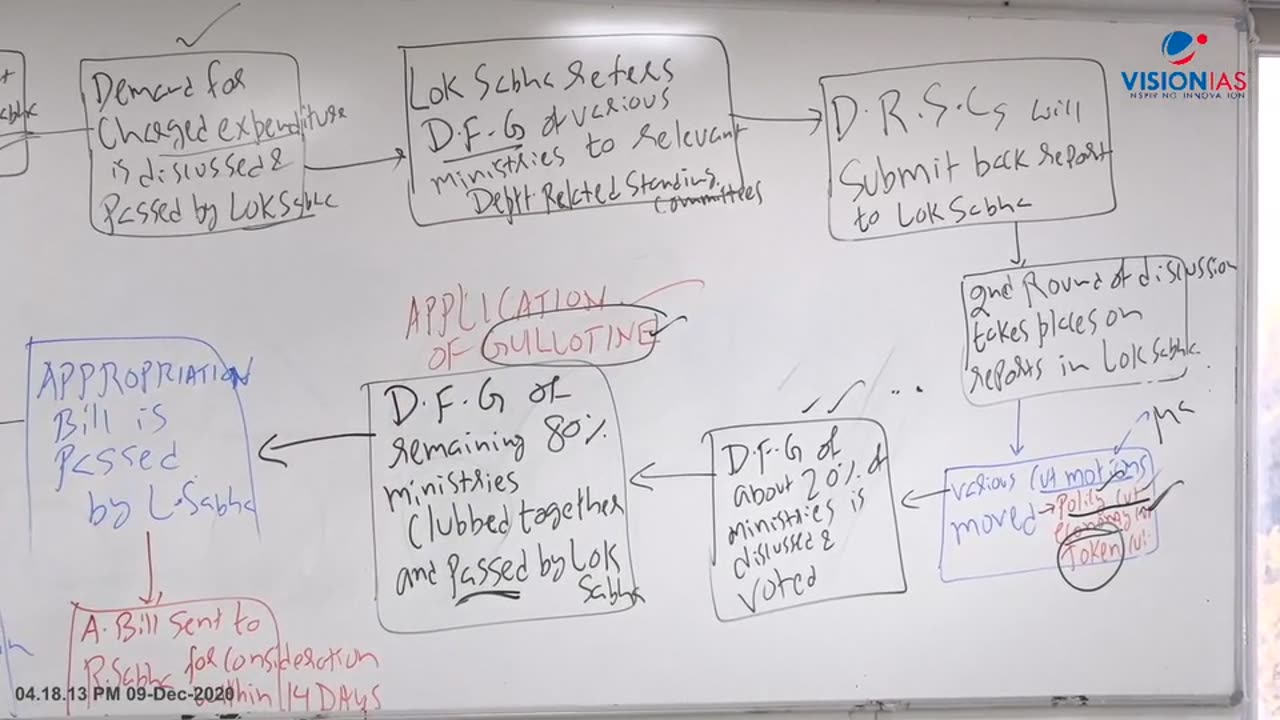 VISIONIAS
INSPIRING INNOVATION
Demand for
Charged expenditure
is discussed &
Passed by LokSabha
Lok Sabha refers
D.F.G of various
ministries to relevant
Deptt. Related Standing
Committees
D.R.S.Cs will
Submit back report
to Lok Sabha
2nd Round of discussion
takes places on
reports in Lok Sabha
various Cut motions
moved → Policy Cut
economy Cut
Token Cut
D.F.G of
about 20% of
ministries is
discussed &
voted
APPLICATION
OF GULLOTINE
D.F.G of
remaining 80%
ministries
Clubbed together
and Passed by Lok
Sabha
APPROPRIATION
Bill is
Passed
by L.Sabha
A. Bill sent to
R.Sabha for consideration
within 14 DAYS
04.18.13 PM 09-Dec-2020